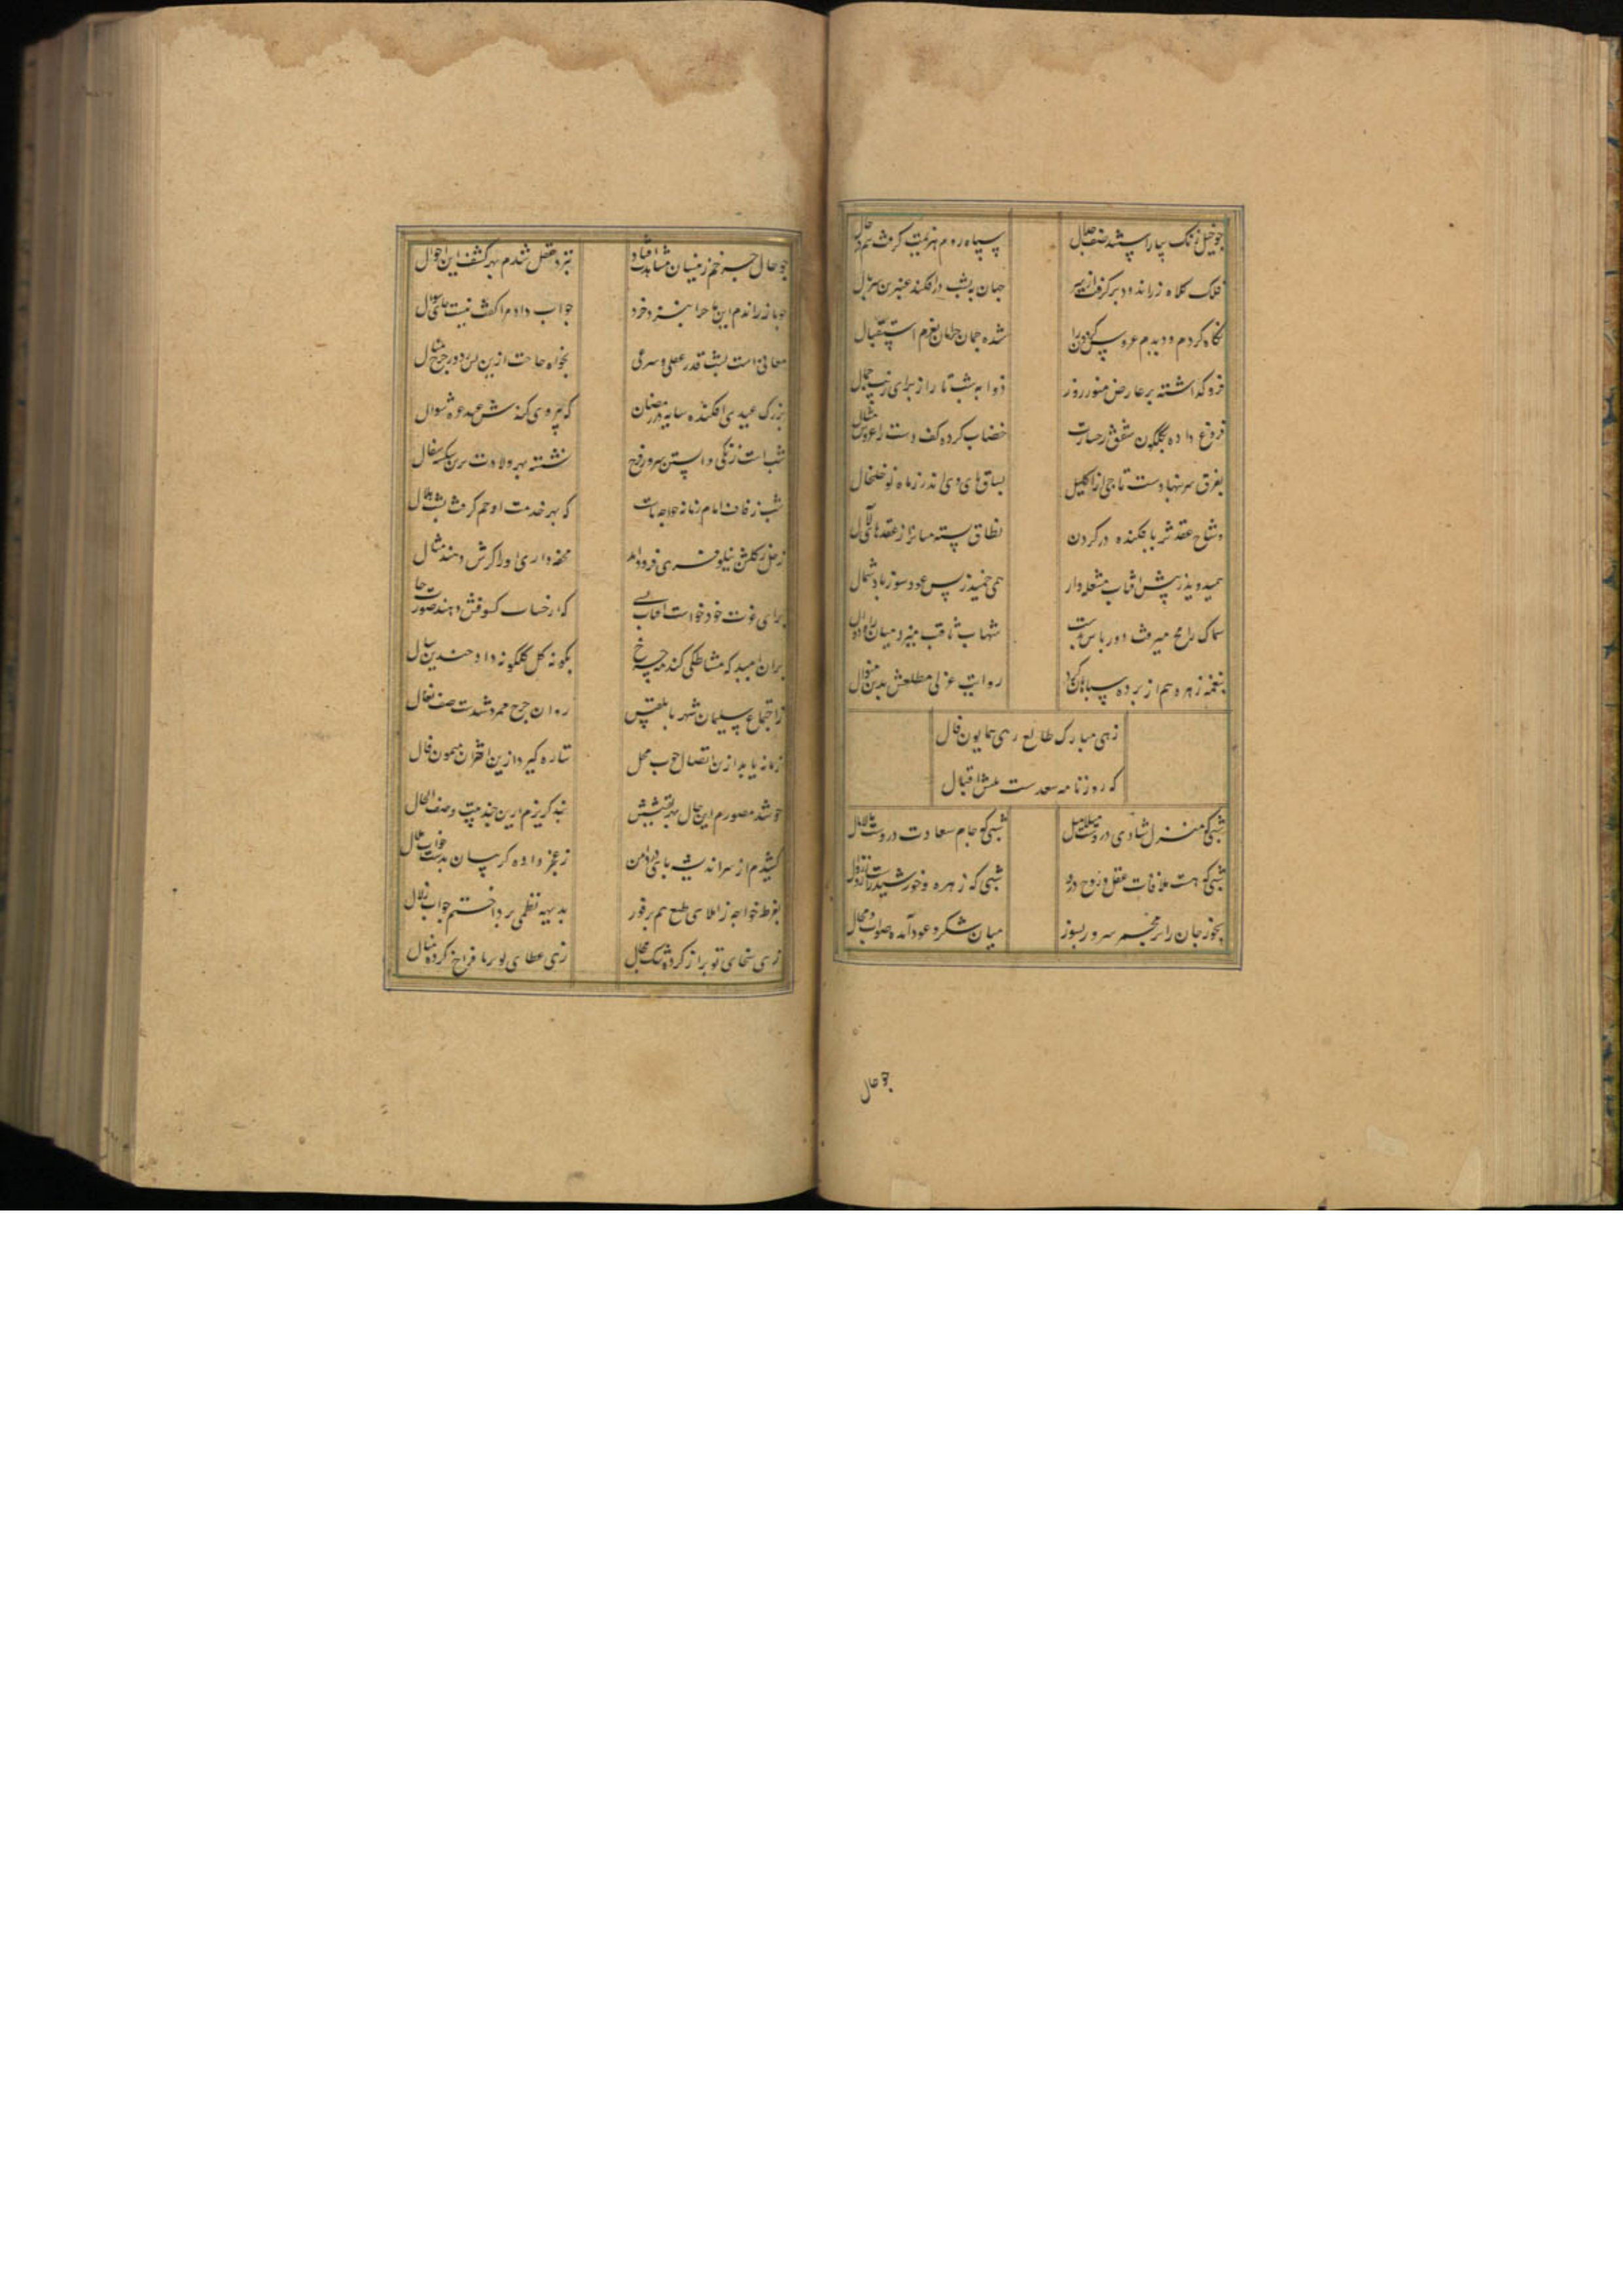 چو خیل زنک بیاراستند صف جدال سپاه روم هزیمت گرفت هم در حال
فلک کلاه زراندود بر گرفت از سر جهان بشب در افکند عنبرین سربال
نگاه کردم و دیدم عروس گردون را شده جمان چمان بعزم استقبال
فرو گذاشته بر عارض منور روز ذوابه شب تا را از برای زیب جمال
فروغ داده بگلگون شفق رخسارت خضاب کرده کف دست را عروس مثال
بفرق سر بنهادست تاجی از اکلیل بساق های وی اندر ز ماه نو خلخال
وشاح عقد ثریا فکنده در گردن نطاق بسته میانرا ز عقدهای لآل
همیدوید ز پیش آفتاب مشعله دار همی خمید ز پس عود سوز باد شمال
سماک رامح میرفت دور باش بدست شهاب ثاقب میزد میان راه دوال
بنغمه زهره هم از پرده سپاهان کرد روایت غزلی مطلعش بدین منوال
زهی مبارک طالع زهی همایون فال
که روزنامه سعدست نقش اقبال
شبی که منزل شادی دروست میلامیل شبی که جام سعادت دروست مالامال
شبی که هست ملاقات عقل و روح درو شبی که زهره و خورشید راست
بخور جان را بر مجمر سرور بسوز میان شکر و عود آمده جواب و
چو حال
چو حال چرخم زینسان مشاهدت افتاد بنزد عقل شدم بهر کشف این احوال
چو باز راندم این ماجرا بنزد خرد جواب داد مرا گفت نیست جای سوال
معافی است شب قدر عقلی و شرعی بخواه حاجت ازین پس
بزرگ عیدی افکنده سایه در رمضان که پیروی کندش عهد غره شوال
شب است زنگی و آبستن سرور و فرح نشسته بهر ولادت برین
شب زفاف امام زمانه خواجه ماست که بهر خدمت او جرم گرفت شب
زحل ز گلشن نیلوفری فرود آمد محفه داری او را گرش دهند مثال
برای نوبت خود خواست آفتاب بسی که رخساب کسوفش دهند صورت حال
بر آن امید که مشاطگی کند چرخ بگونه گل گلگونه داد چندین سال
ز اجتماع سلیمان شهر با بلقیس روان چرخ ممرد شدت صف نعال
زمانه یابد ازین اتصال خوب محل ستاره گیرد ازین اقتران میمون فال
چو شد مصورم این حال بهر تفتیش بد گریزم ازین چند بیت وصف الحال
کشیدم از سر اندیشه پای در دامن ز عجز داده گریبان بدست خواب
بفرط خواجه ز املای طبع هم بر فور بدیهه نظمی پرداختم چو آب زلال
زهی سخای تو بر آز کرده تنگ مجال زهی عطای تو بر ما فراخ کرده منال